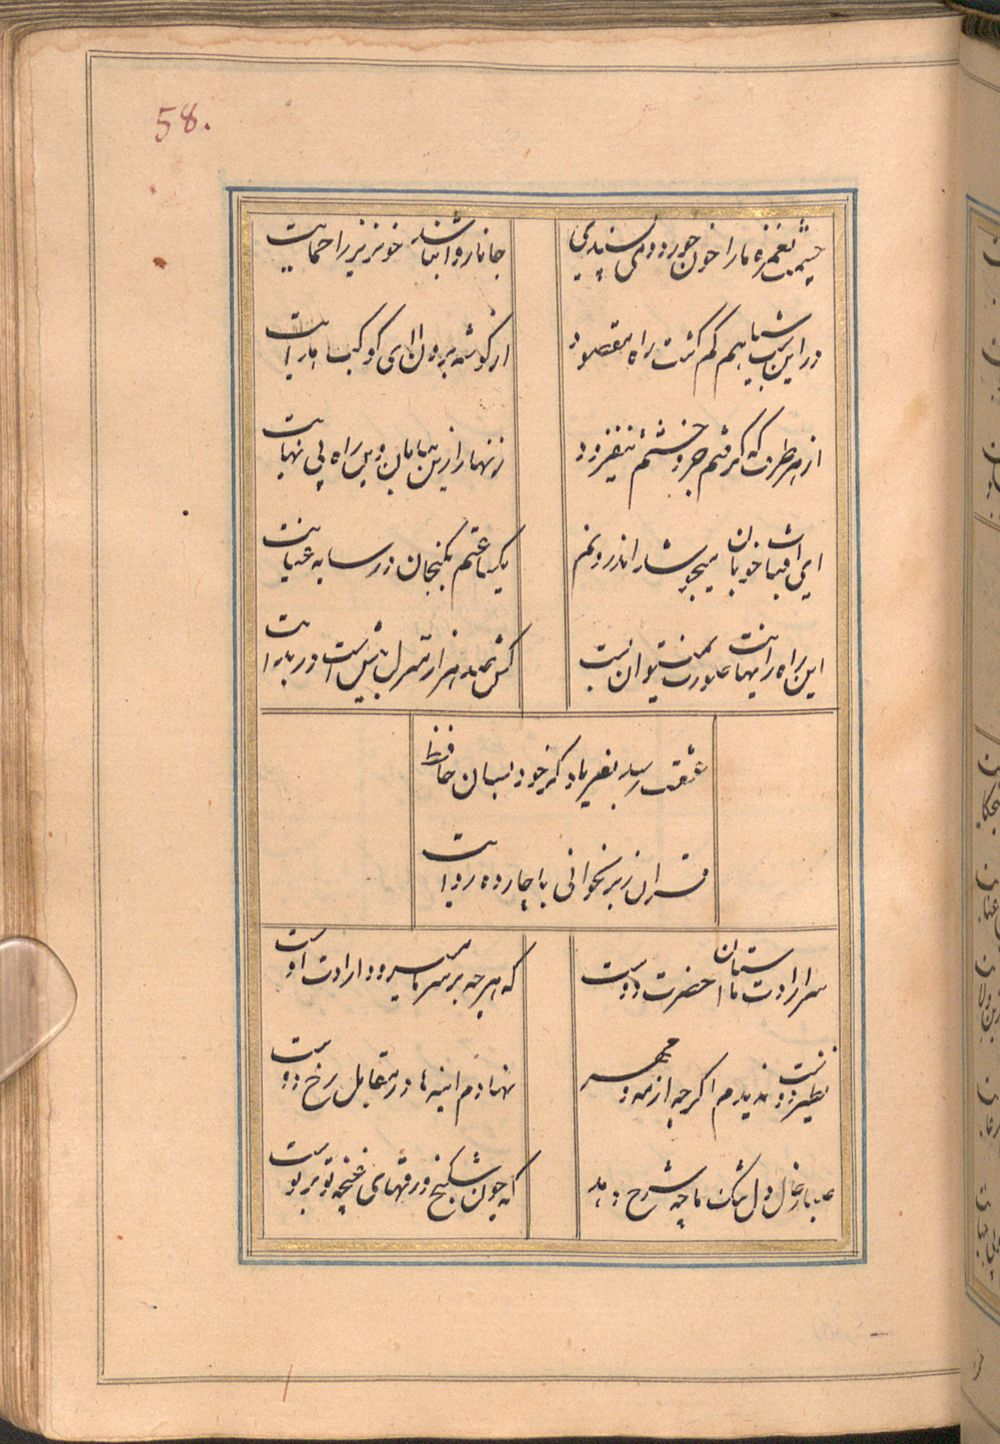 58.
چشمت بغمزه ما را خون خورد و می پسندی
جانا روا نباشد خونریز را حمایت
در این شب سیاهم گم گشت راه مقصود
از گوشه برون ای ای کوکب هدایت
از هر طرف که رفتم جز وحشتم نیفزود
زنهار ازین بیابان وین راه بی نهایت
ای آفتاب خوبان میجوشد اندرونم
یکساعتم بگنجان در سایه عنایت
این راه را نهایت صورت نمیتوان بست
کش صد هزار منزل بیش است در بدایت
عشقت رسد بفریاد گر خود بسان حافظ
قران زبر بخوانی با چارده روایت
سر ارادت ما استان حضرت دوست
که هر چه بر سر ما میرود ارادت اوست
نظیر دوست ندیدم اگر چه از مه و مهر
نهادم اینه ها در مقابل رخ دوست
صبا ز حال دل تنک ما چه شرح دهد
که چون شکنج ورقهای غنچه تو بر توست